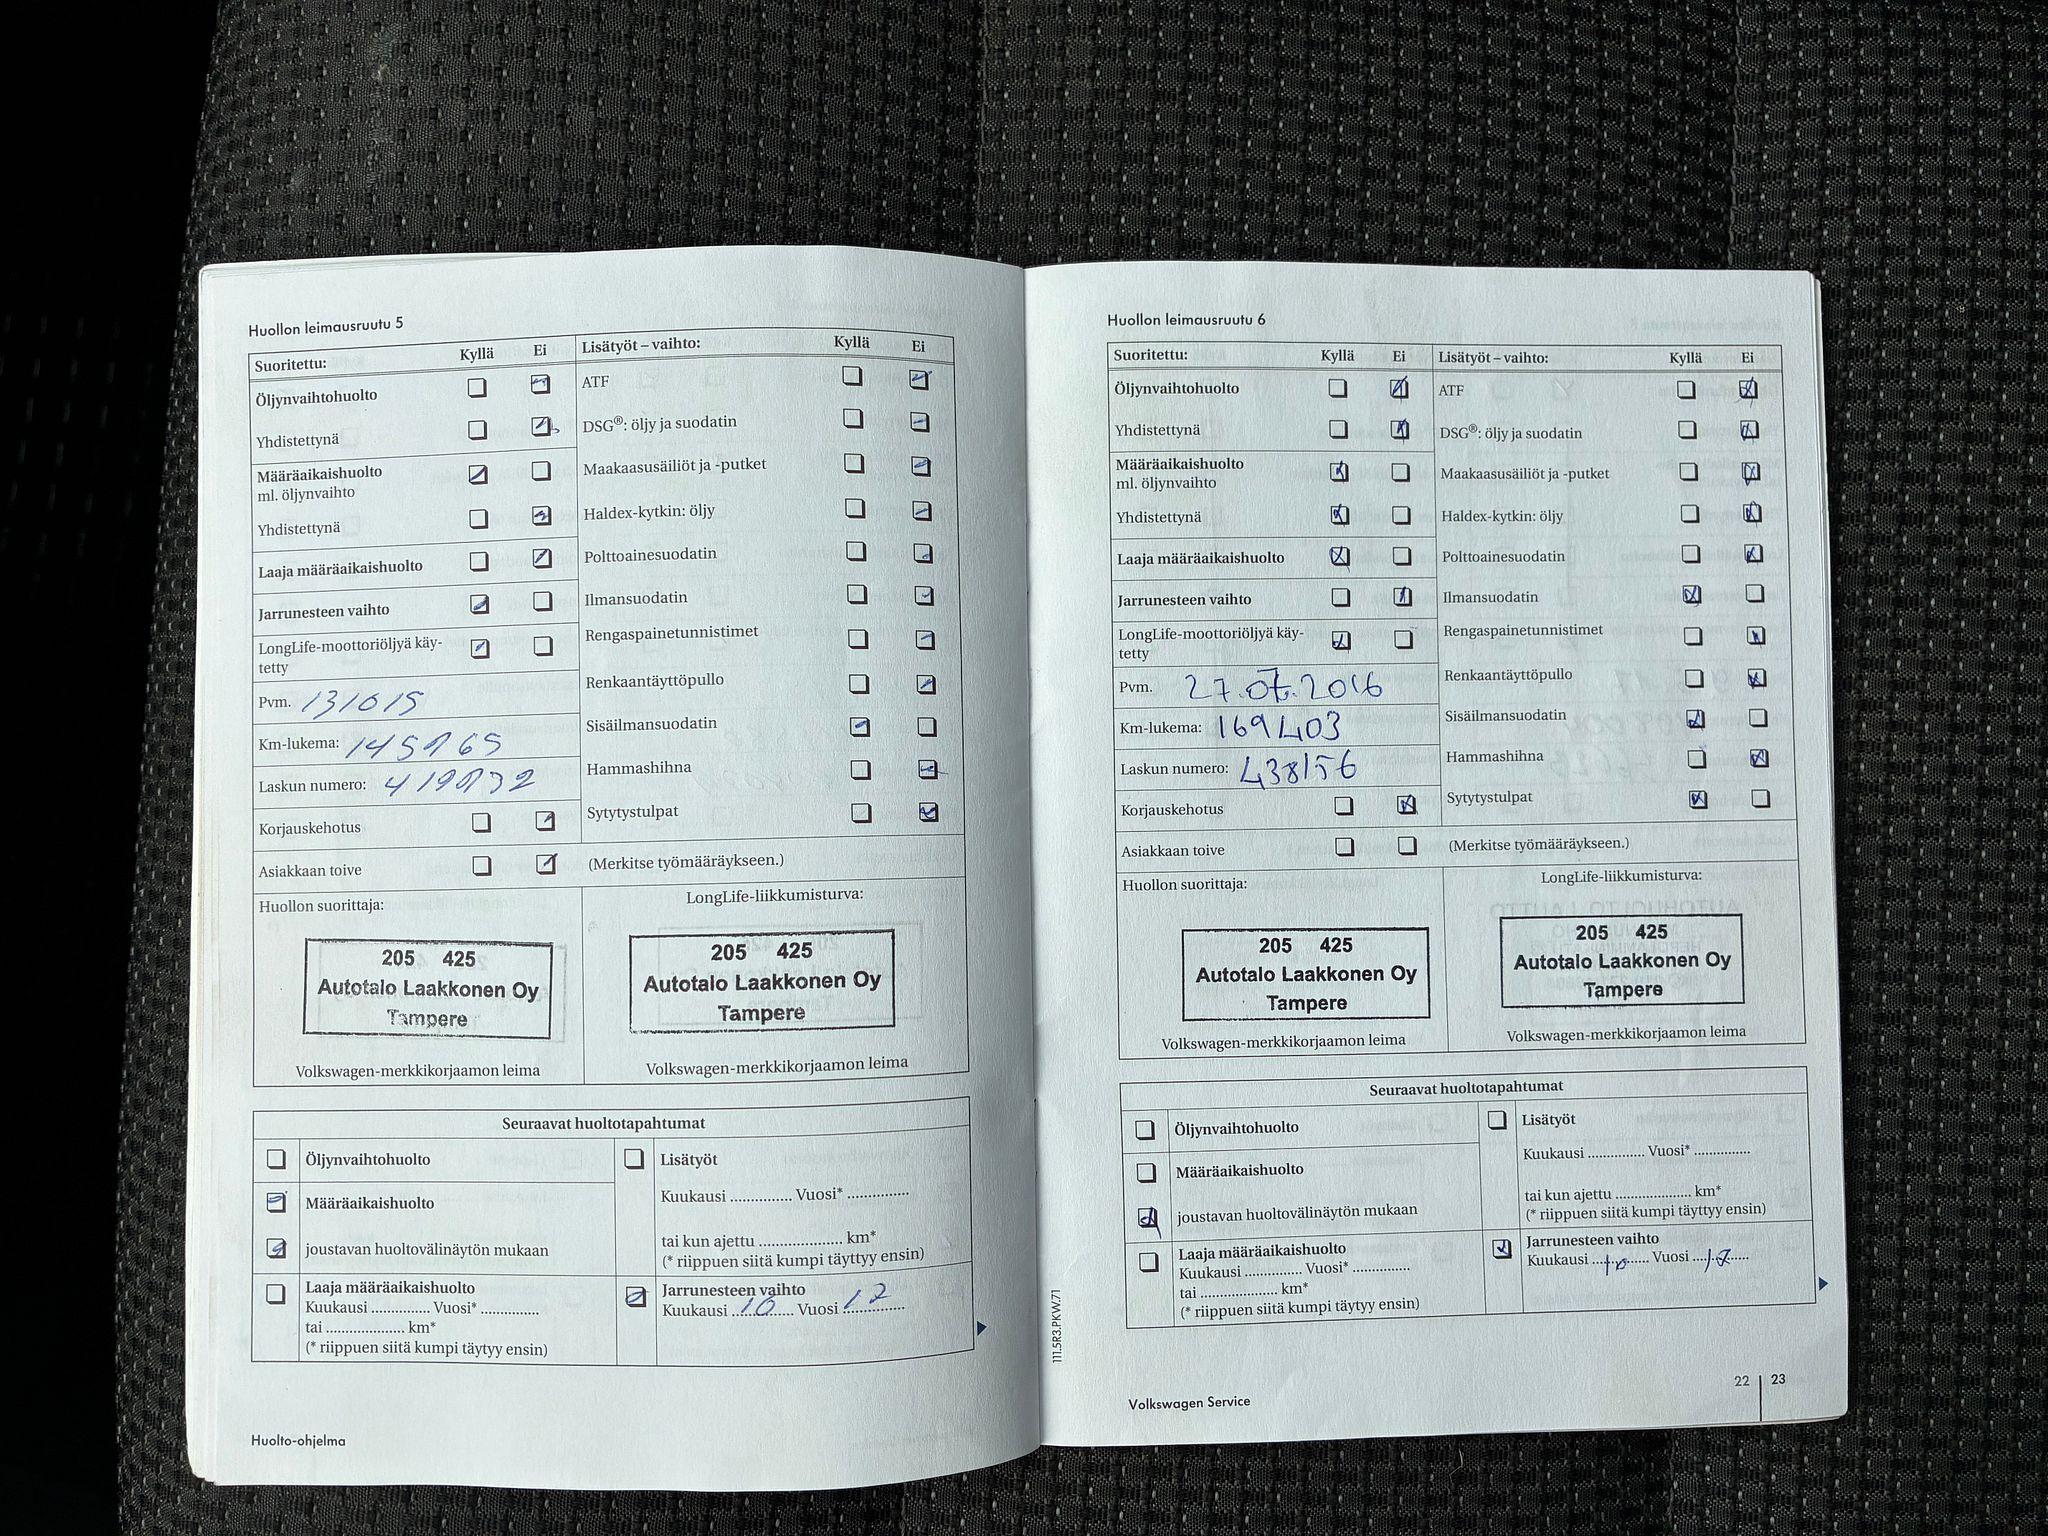 Huollon leimausruutu 5
Suoritettu: Kyllä Ei
Öljynvaihtohuolto
Yhdistettynä
Määräaikaishuolto
ml. öljynvaihto
Yhdistettynä
Laaja määräaikaishuolto
Jarrunesteen vaihto
LongLife-moottoriöljyä käy-
tetty
Pvm. 131015
Km-lukema: 145165
Laskun numero: 4190132
Korjauskehotus
Asiakkaan toive
Lisätyöt – vaihto: Kyllä Ei
ATF
DSG®: öljy ja suodatin
Maakaasusäiliöt ja -putket
Haldex-kytkin: öljy
Polttoainesuodatin
Ilmansuodatin
Rengaspainetunnistimet
Renkaantäyttöpullo
Sisäilmansuodatin
Hammashihna
Sytytystulpat
(Merkitse työmääräykseen.)
Huollon suorittaja:
205 425
Autotalo Laakkonen Oy
Tampere
Volkswagen-merkkikorjaamon leima
LongLife-liikkumisturva:
205 425
Autotalo Laakkonen Oy
Tampere
Volkswagen-merkkikorjaamon leima
Seuraavat huoltotapahtumat
Öljynvaihtohuolto
Määräaikaishuolto
joustavan huoltovälinäytön mukaan
Laaja määräaikaishuolto
Kuukausi .............. Vuosi* ..............
tai .................... km*
(* riippuen siitä kumpi täytyy ensin)
Lisätyöt
Kuukausi .............. Vuosi* ..............
tai kun ajettu .................... km*
(* riippuen siitä kumpi täyttyy ensin)
Jarrunesteen vaihto
Kuukausi 10 Vuosi 17
Huolto-ohjelma
Huollon leimausruutu 6
Suoritettu: Kyllä Ei
Öljynvaihtohuolto
Yhdistettynä
Määräaikaishuolto
ml. öljynvaihto
Yhdistettynä
Laaja määräaikaishuolto
Jarrunesteen vaihto
LongLife-moottoriöljyä käy-
tetty
Pvm. 27.07.2016
Km-lukema: 169403
Laskun numero: 438156
Korjauskehotus
Asiakkaan toive
Lisätyöt – vaihto: Kyllä Ei
ATF
DSG®: öljy ja suodatin
Maakaasusäiliöt ja -putket
Haldex-kytkin: öljy
Polttoainesuodatin
Ilmansuodatin
Rengaspainetunnistimet
Renkaantäyttöpullo
Sisäilmansuodatin
Hammashihna
Sytytystulpat
(Merkitse työmääräykseen.)
Huollon suorittaja:
205 425
Autotalo Laakkonen Oy
Tampere
Volkswagen-merkkikorjaamon leima
LongLife-liikkumisturva:
205 425
Autotalo Laakkonen Oy
Tampere
Volkswagen-merkkikorjaamon leima
Seuraavat huoltotapahtumat
Öljynvaihtohuolto
Määräaikaishuolto
joustavan huoltovälinäytön mukaan
Laaja määräaikaishuolto
Kuukausi .............. Vuosi* ..............
tai .................... km*
(* riippuen siitä kumpi täytyy ensin)
Lisätyöt
Kuukausi .............. Vuosi* ..............
tai kun ajettu .................... km*
(* riippuen siitä kumpi täyttyy ensin)
Jarrunesteen vaihto
Kuukausi 10 Vuosi 17
111.5R3.PKW.71
Volkswagen Service
22 | 23